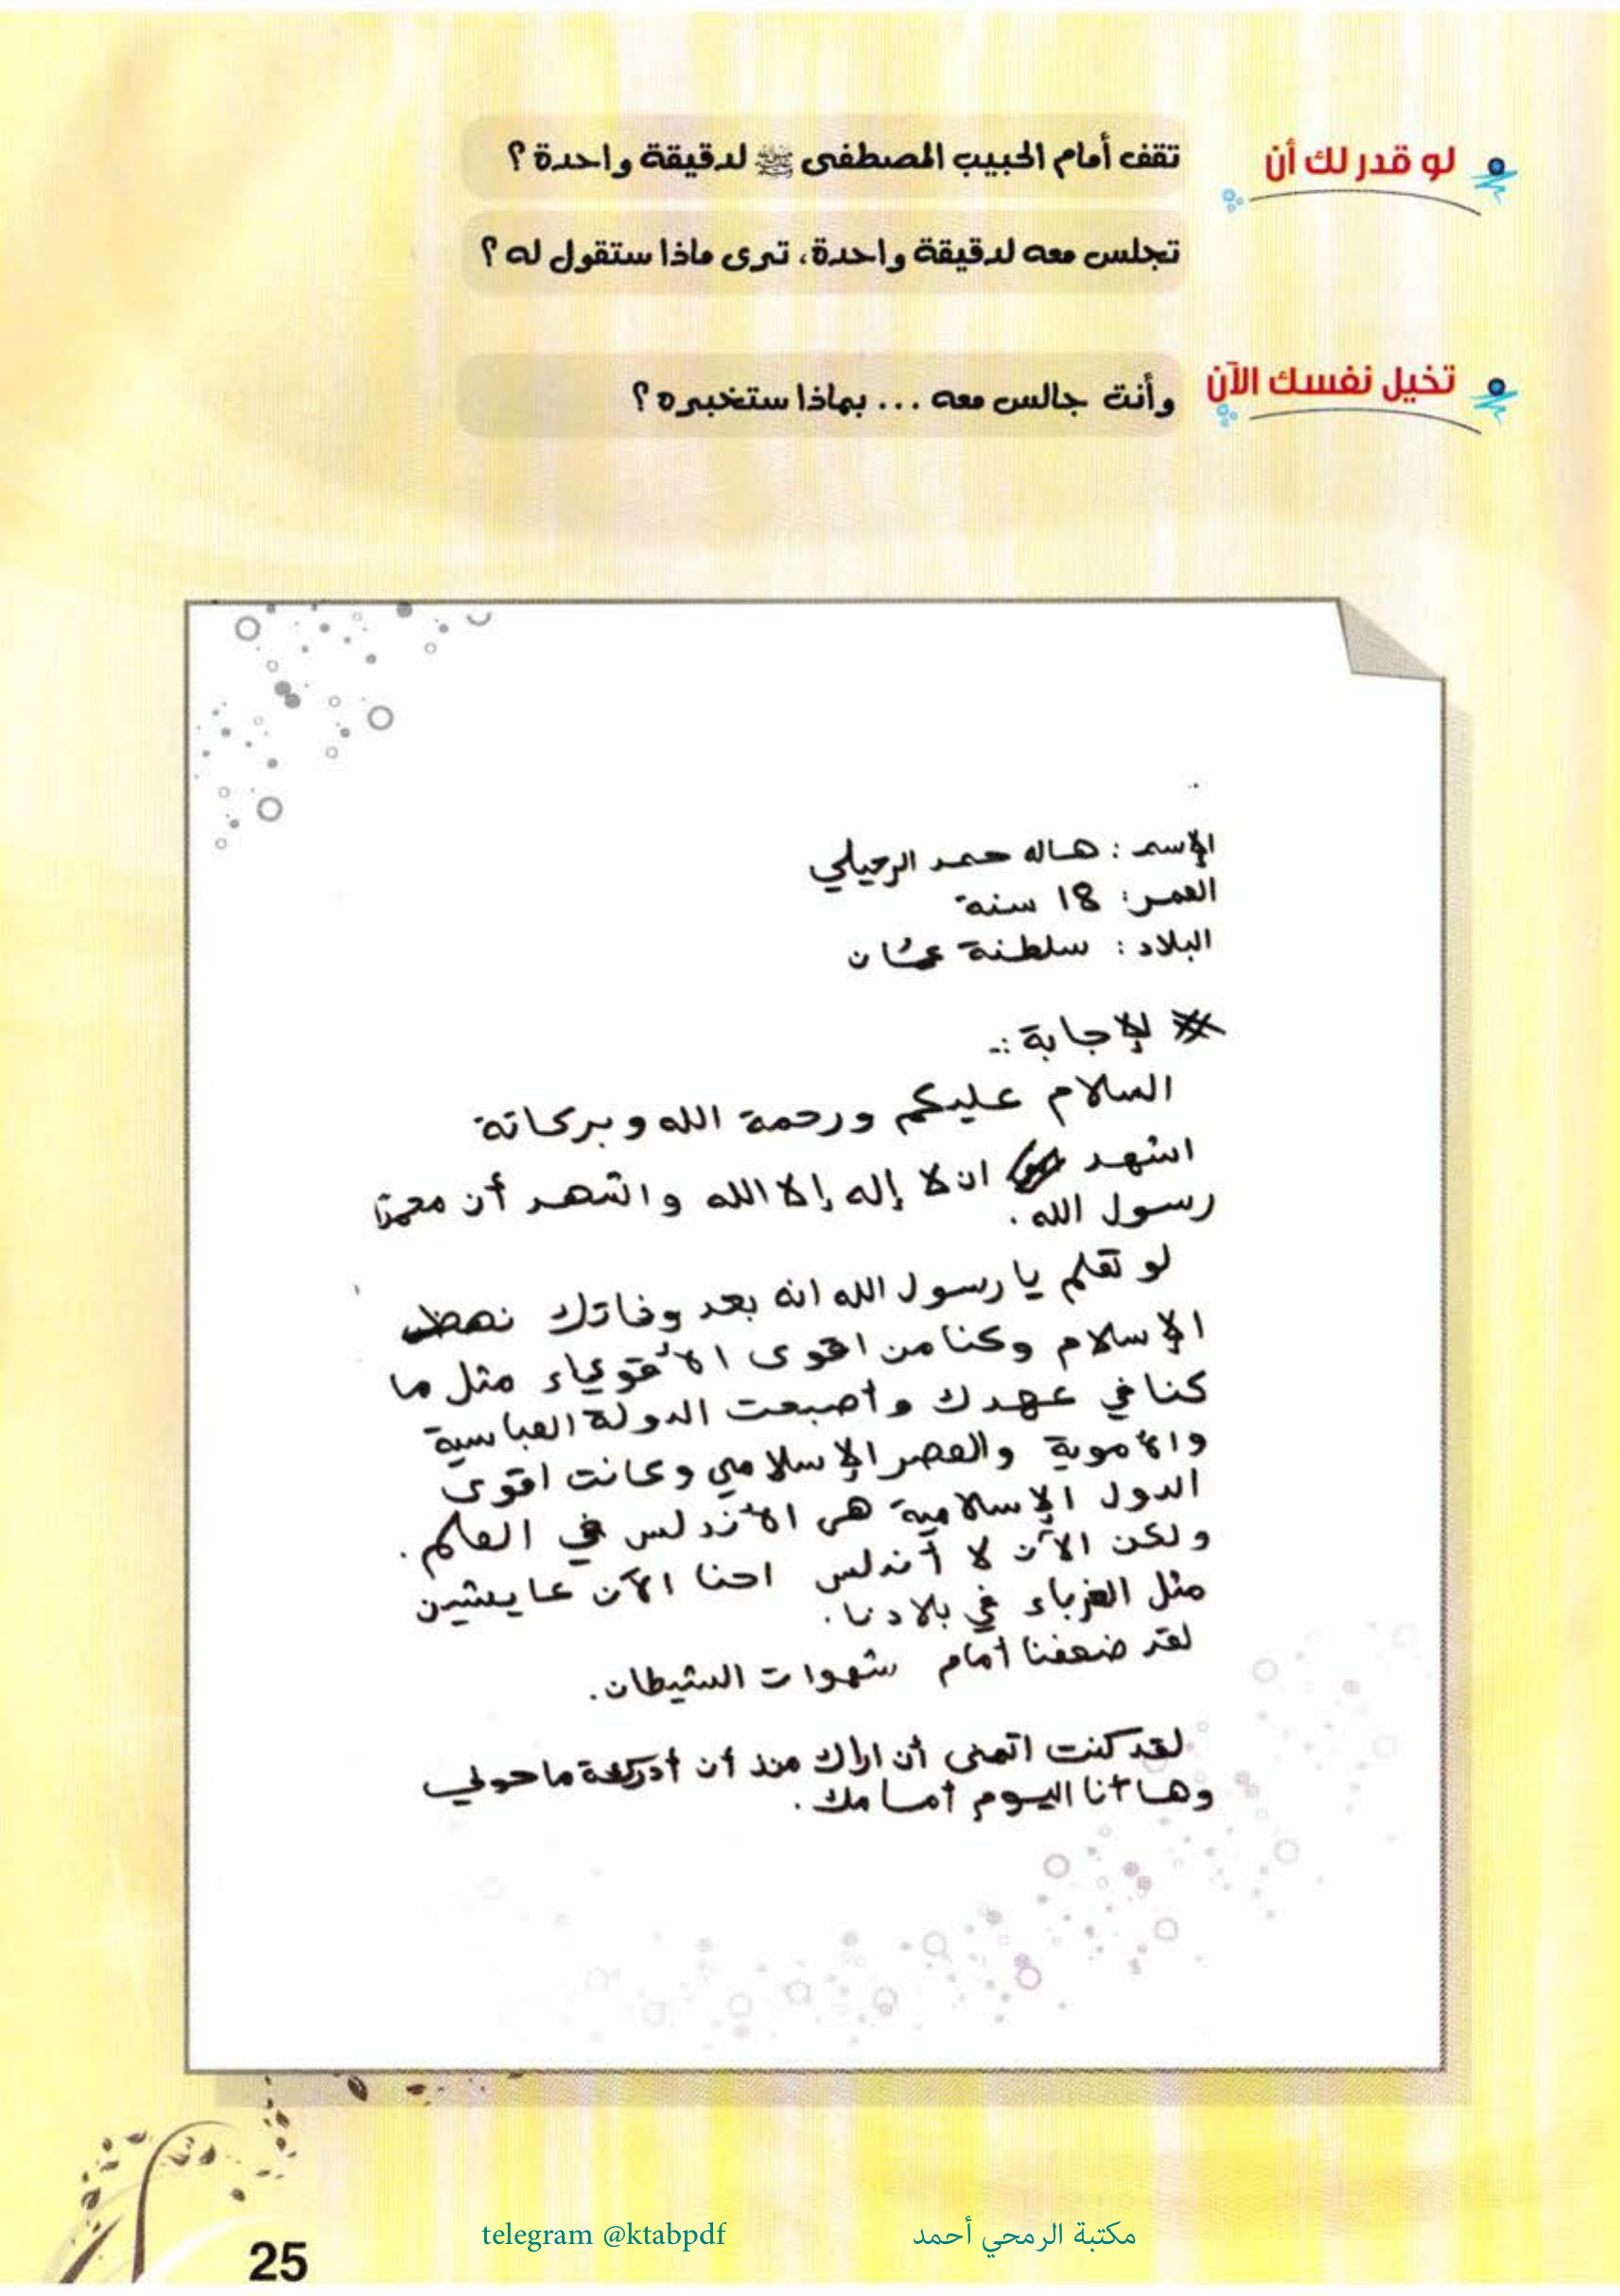 لو قدر لك أن تقف أمام الحبيب المصطفى ﷺ لدقيقة واحدة؟
تجلس معه لدقيقة واحدة، ترى ماذا ستقول له؟
تخيل نفسك الآن وأنت جالس معه ... بماذا ستخبره؟
الإسم : هاله حمد الرحيلي
العمر: 18 سنة
البلاد : سلطنة عمان
لإجابة :-
السلام عليكم ورحمة الله وبركاتة
اشهد ان لا إله إلا الله واشهد أن محمدًا
رسول الله.
لو تعلم يا رسول الله انه بعد وفاتك نهض
الإسلام وكنا من اقوى الأقوياء مثل ما
كنا في عهدك وأصبحت الدولة العباسية
والأموية والعصر الإسلامي وكانت اقوى
الدول الإسلامية هي الأندلس في العلم.
ولكن الآن لا أندلس احنا الآن عايشين
مثل الغرباء في بلادنا.
لقد ضعفنا أمام شهوات الشيطان.
لقد كنت اتمنى أن اراك منذ أن أدركة ما حولي
وها أنا اليوم أمامك.
telegram @ktabpdf مكتبة الرمحي أحمد
25